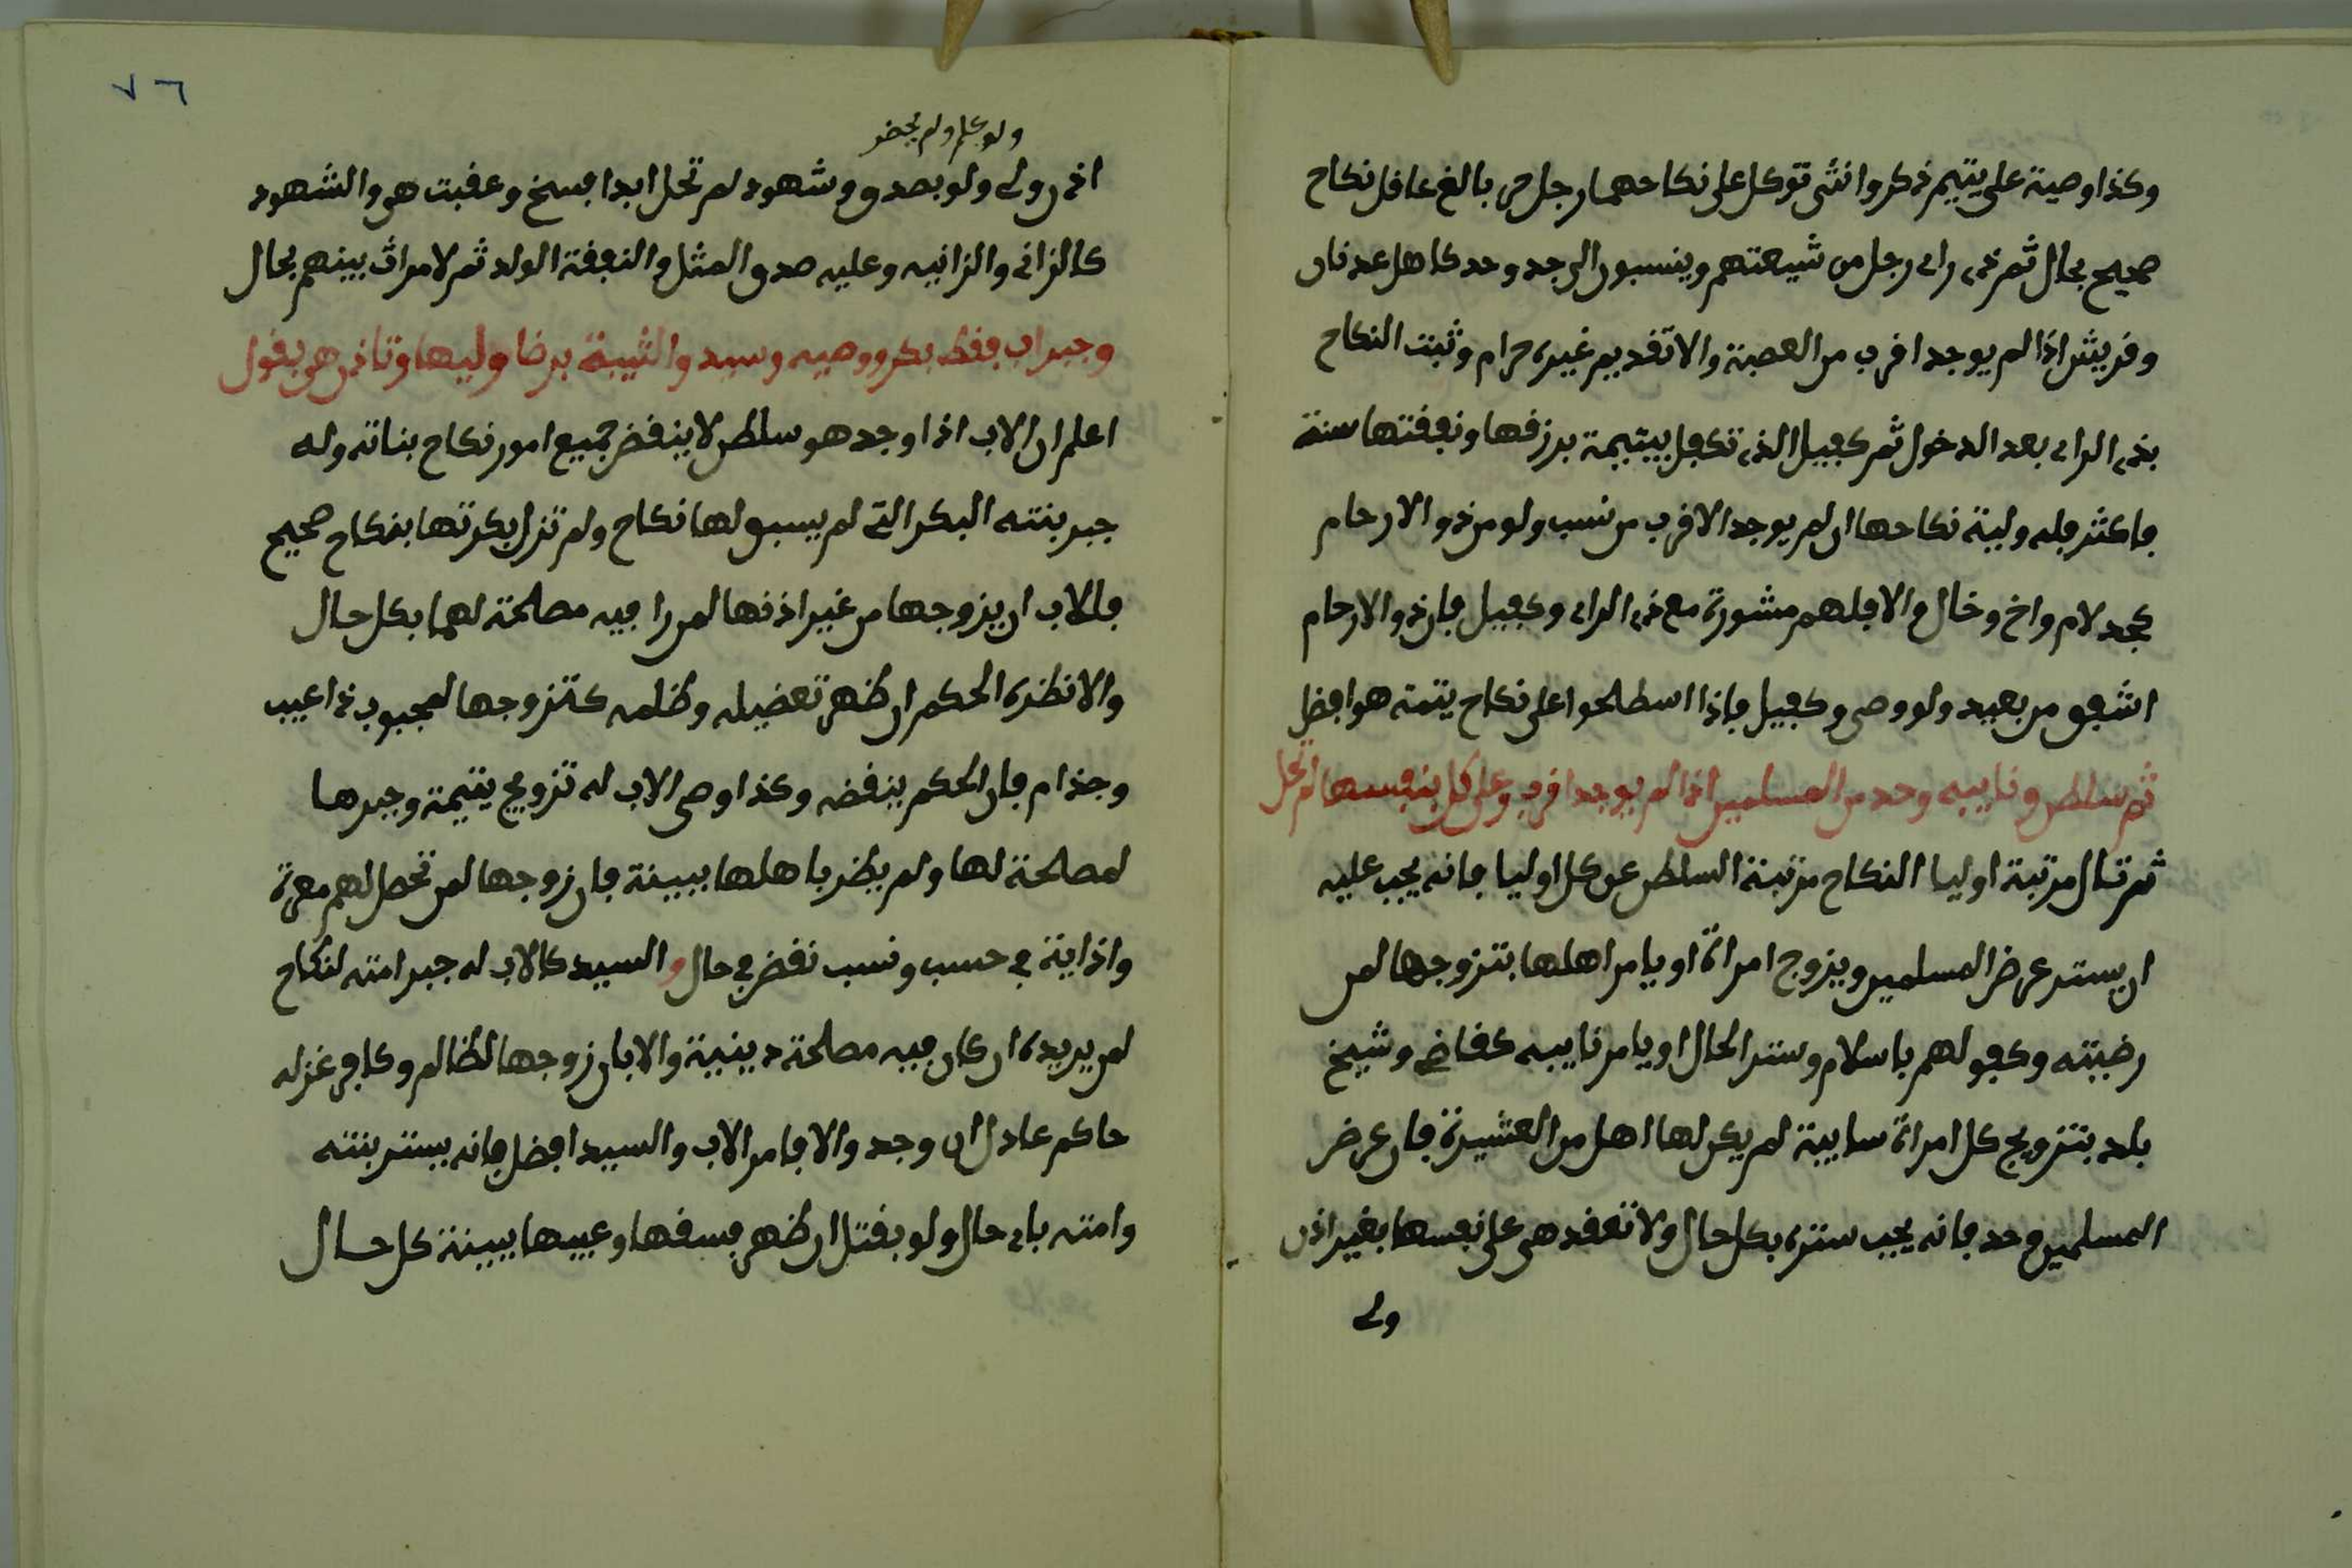 وكذا وصية على يتيم ذكر وانثى توكل على نكاحهما رجل حر بالغ عاقل نكاح
صحيح بحال ثم ذي راي رجل من شيعتهم وينسبون الى جد وحد كاهل عدنان
وقريش اذا لم يوجد اقرب من العصبة والا تقديم غيره حرام وثبت النكاح
بذي الراي بعد الدخول ثم كفيل الذي تكفل بيتيمة برزقها ونفقتها سنة
فاكثر فله ولية نكاحها ان لم يوجد الاقرب من نسب ولو من ذو الارحام
كجد لام واخ وخال والا فلهم مشورة مع ذي الراي وكفيل فان ذو الارحام
اشفق من بعيد ولو وصي وكفيل فاذا اسطلحوا على نكاح يتمته هو افضل
ثم سلطن ونايبه وحد من المسلمين اذا لم يوجد اقرب وعلى كل بنفسها لم تحل
ثم قال مرتبة اوليا النكاح مرتبة السلطن عن كل اوليا فانه يجب عليه
ان يستر عرض المسلمين ويزوج امراة او يامر اهلها بتزوجها لمن
رضيته وكفو لهم باسلام وستر الحال او يامر نايبه كقاضي وشيخ
بلد بتزويج كل امراة سايبة لم يكن لها اهل من العشيرة فان عرض
المسلمين وحد فانه يجب ستره بكل حال ولا تعقد هي على نفسها بغير اذن
ولي
٧٦
ولو علم ولم يحضر
اذن ولي ولو بصدق وشهود لم تحل ابدا فسخ وعقبت هي والشهود
كالزاني والزانيه وعليه صدق المثل والنفقة الولد ثم لا مراث بينهم بحال
وجبر اب فقط بكر ووصيه وسيد والثيبة برضا وليها وتاذن هي بقول
اعلم ان الاب اذا وجد هو سلطن لا ينقض جميع امور نكاح بناته وله
جبر بنته البكر التي لم يسبق لها نكاح ولم تزل بكرتها بنكاح صحيح
فللاب ان يزوجها من غير اذنها لمن را فيه مصلحة لهما بكل حال
والا نظره الحكم ان ظهر تعضيله وظلمه كتزوجها لمجبوب ذا عيب
وجذام فان الحكم ينقضه وكذا وصي الاب له تزويج يتيمة وجبرها
لمصلحة لها ولم يظر باهلها ببينة فان زوجها لمن تحصل لهم معرة
واذاية في حسب ونسب نقض في حال والسيد كالاب له جبر امته لنكاح
لمن يريده ان كان فيه مصلحة دينية والا بان زوجها لظالم وكافر عزله
حاكم عادل ان وجد والا فامر الاب والسيد افضل فانه يستر بنته
وامته باي حال ولو بقتل ان ظهر فسقها وعيبها ببينة كل حال